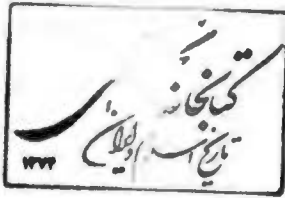 کتابخانه
تاریخ اسلام و ایران
۱۳۷۳